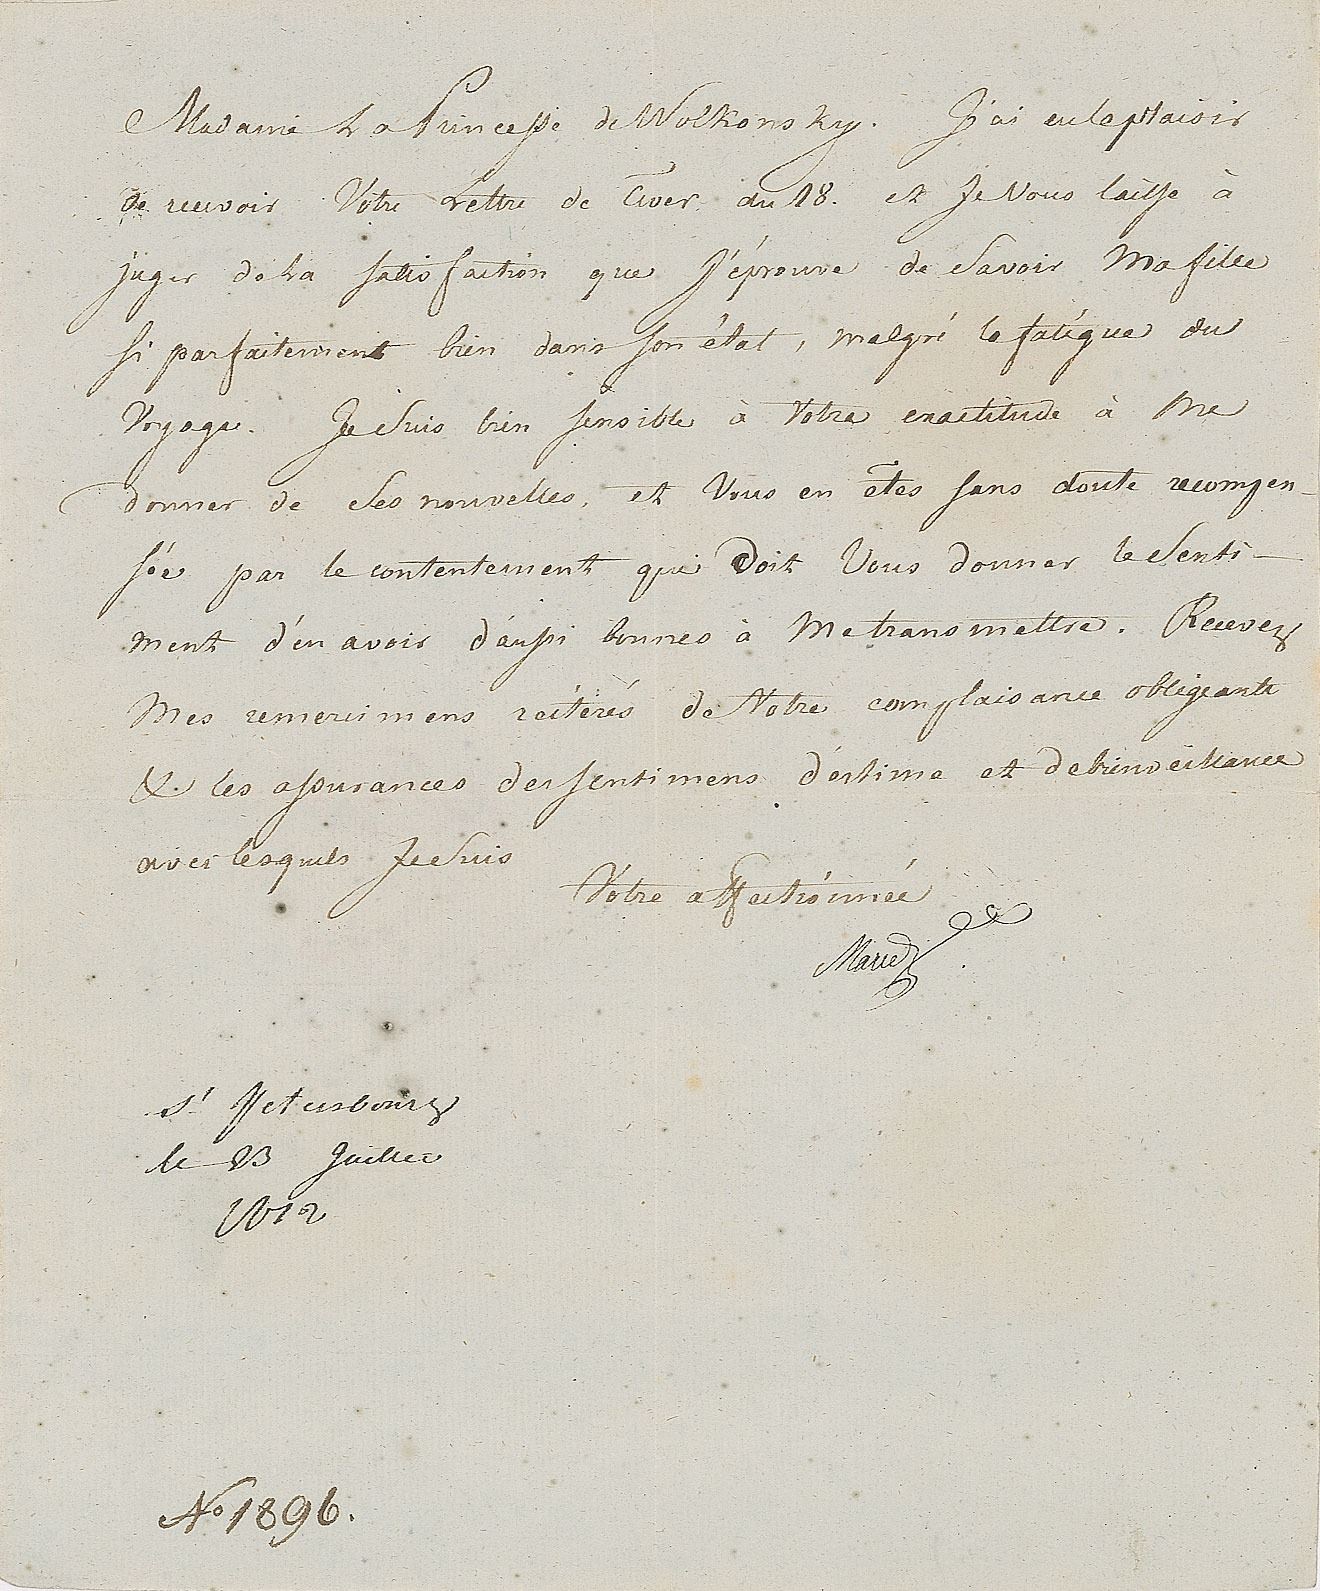 Madame La Princesse de Wolkonsky. J'ai eu le plaisir
de recevoir Votre Lettre de Twer du 18. et Je Vous laisse à
juger de La satisfaction que J'éprouve de Savoir Ma fille
si parfaitement bien dans son état, malgré la fatigue du
Voyage. Je Suis bien sensible à Votre exactitude à Me
donner de Ses nouvelles, et Vous en êtes sans doute recompen-
sée par le contentement que doit Vous donner le Senti-
ment d'en avoir d'aussi bonnes à Me transmettre. Recevez
Mes remercimens réitérés de Votre complaisance obligeante
&. les assurances des sentimens d'estime et de bienveillance
avec lesquels Je Suis
Votre affectionnée
Marie
St Petersbourg
le 23 Juillet
1812
No 1896.